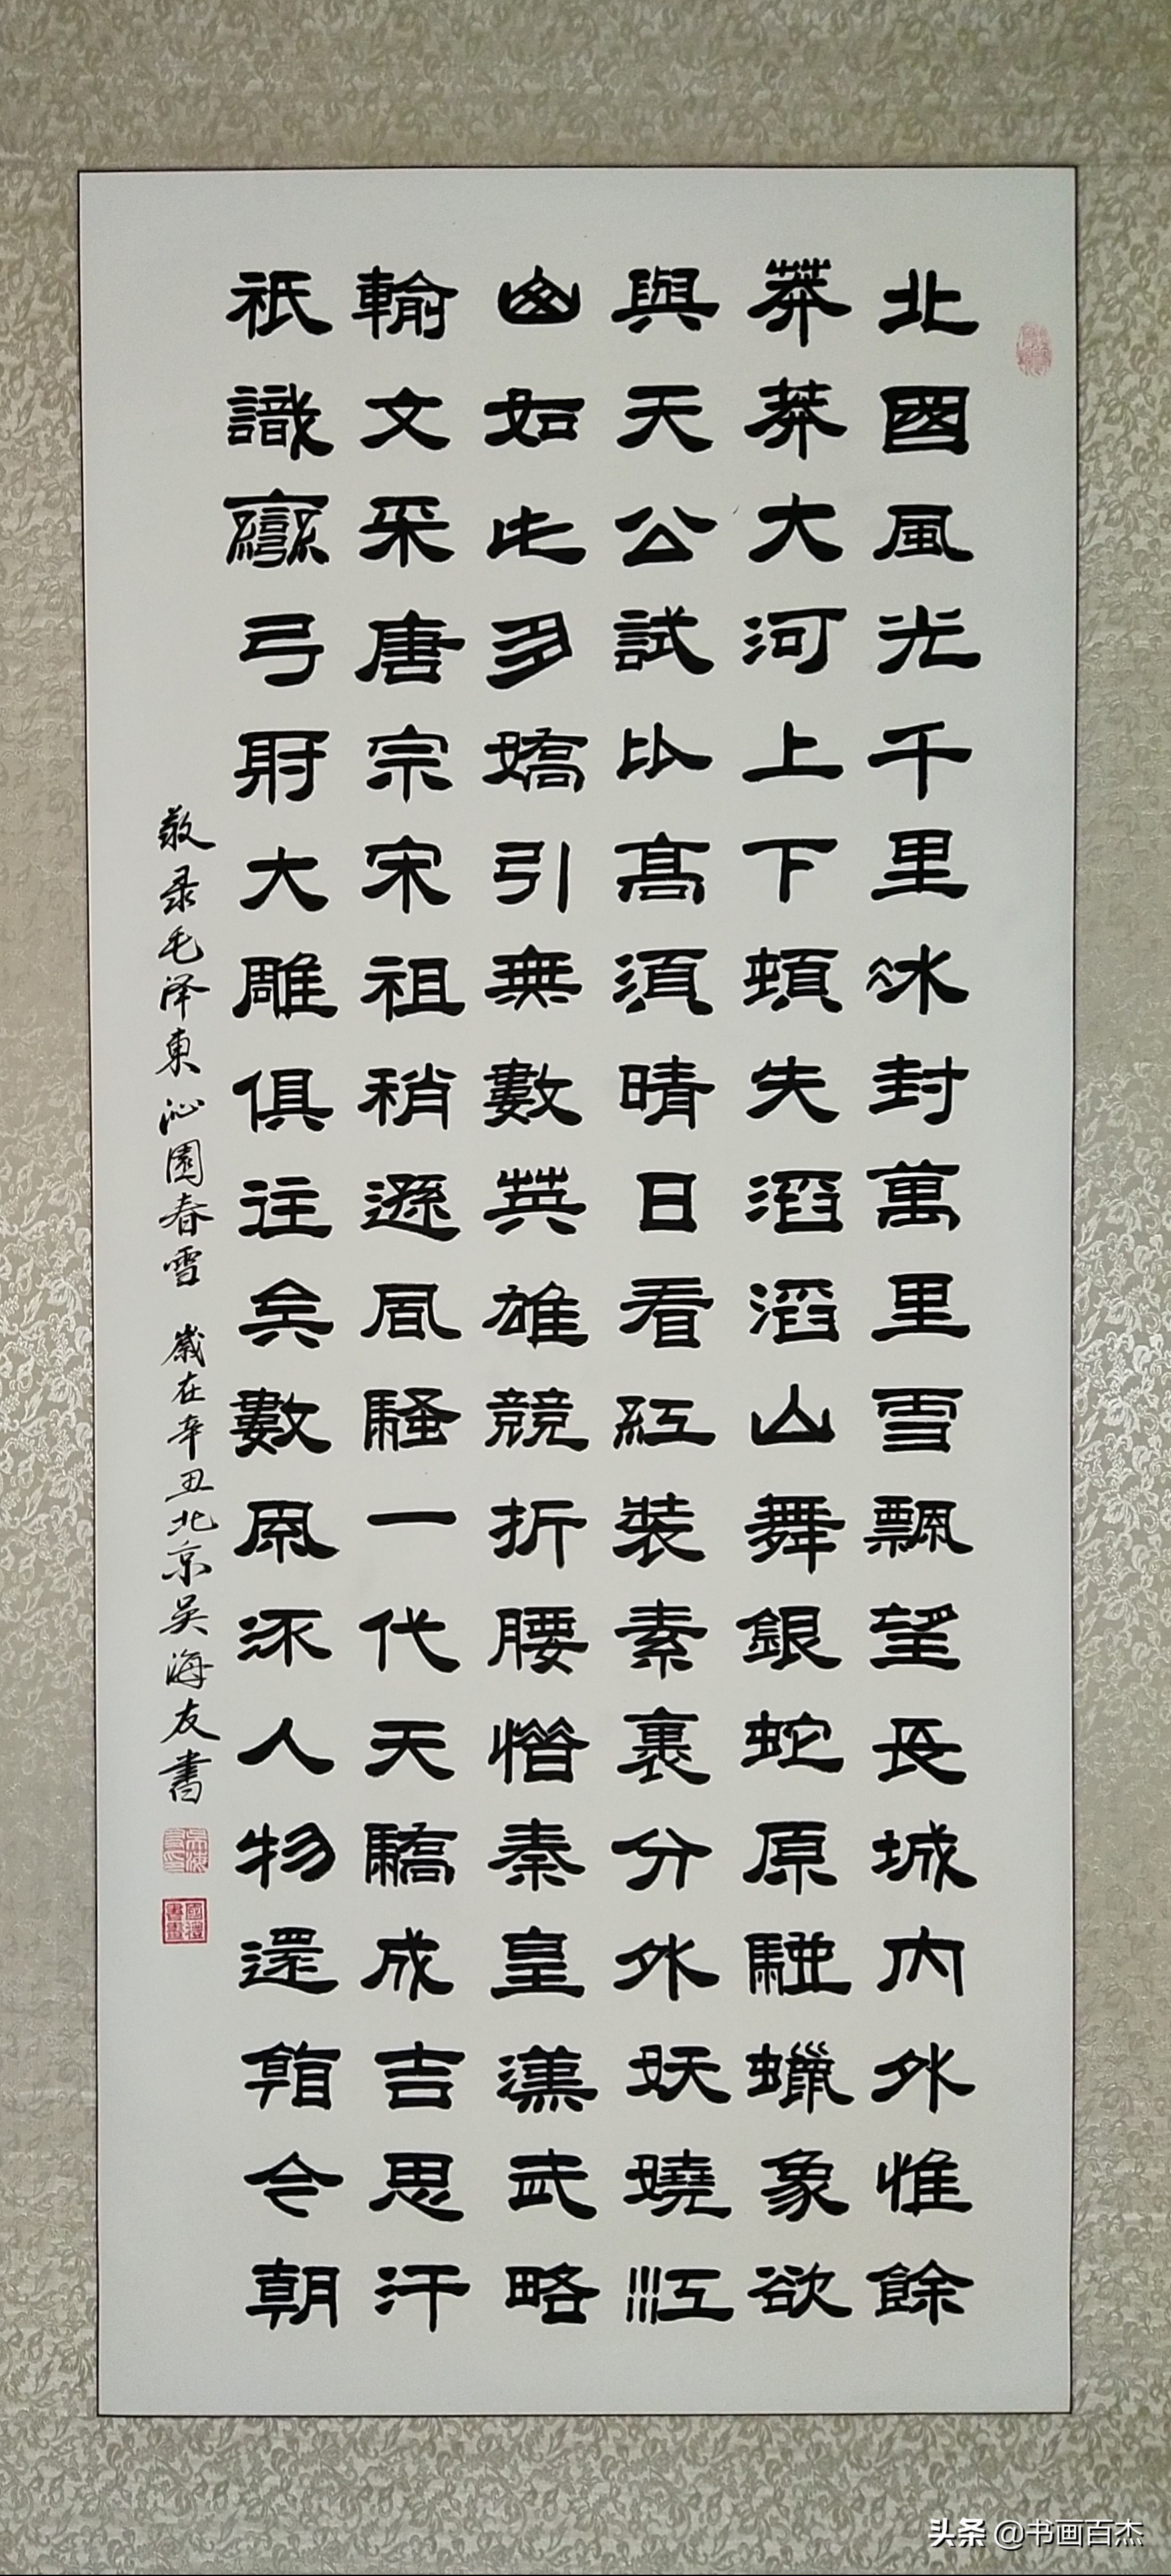 北國風光千里冰封萬里雪飄望長城内外惟餘
莽莽大河上下頓失滔滔山舞銀蛇原馳蠟象欲
與天公試比高須晴日看紅裝素裹分外妖嬈江
山如此多嬌引無數英雄競折腰惜秦皇漢武略
輸文采唐宗宋祖稍遜風騷一代天驕成吉思汗
祇識彎弓射大雕俱往矣數風流人物還看今朝
敬录毛泽東沁園春雪 歲在辛丑北京吴海友書
國禮書畫
头条 @书画百杰